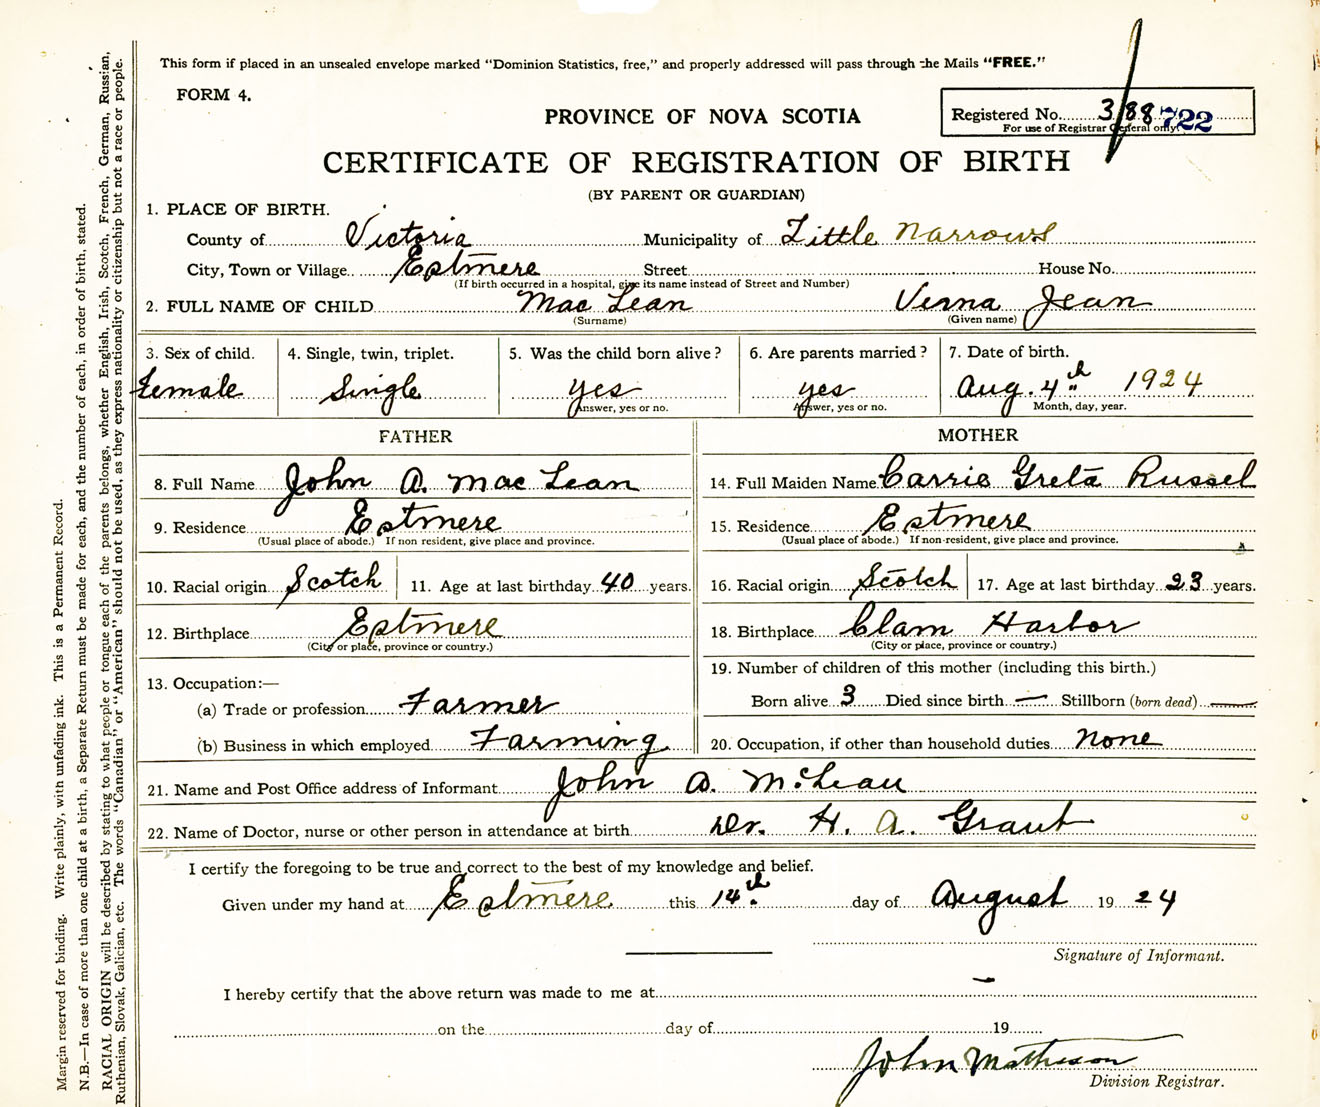 This form if placed in an unsealed envelope marked "Dominion Statistics, free," and properly addressed will pass through the Mails "FREE."
FORM 4.
PROVINCE OF NOVA SCOTIA
Registered No. 3188 722
For use of Registrar General only.
CERTIFICATE OF REGISTRATION OF BIRTH
(BY PARENT OR GUARDIAN)
1. PLACE OF BIRTH.
County of Victoria Municipality of Little Narrows
City, Town or Village Estmere Street House No.
(If birth occurred in a hospital, give its name instead of Street and Number)
2. FULL NAME OF CHILD Mac Lean Verna Jean
(Surname) (Given name)
3. Sex of child. 4. Single, twin, triplet. 5. Was the child born alive? 6. Are parents married? 7. Date of birth.
Female Single yes yes Aug. 4th 1924
Answer, yes or no. Answer, yes or no. Month, day, year.
FATHER MOTHER
8. Full Name John A. Mac Lean 14. Full Maiden Name Carrie Greta Russel
9. Residence Estmere 15. Residence Estmere
(Usual place of abode.) If non resident, give place and province. (Usual place of abode.) If non-resident, give place and province.
10. Racial origin Scotch 11. Age at last birthday 40 years. 16. Racial origin Scotch 17. Age at last birthday 23 years.
12. Birthplace Estmere 18. Birthplace Clam Harbor
(City or place, province or country.) (City or place, province or country.)
13. Occupation:— 19. Number of children of this mother (including this birth.)
(a) Trade or profession Farmer Born alive 3 Died since birth — Stillborn (born dead) —
(b) Business in which employed Farming 20. Occupation, if other than household duties None
21. Name and Post Office address of Informant John A. McLean
22. Name of Doctor, nurse or other person in attendance at birth Dr. H. A. Grant
I certify the foregoing to be true and correct to the best of my knowledge and belief.
Given under my hand at Estmere this 14th day of August 1924
Signature of Informant.
I hereby certify that the above return was made to me at —
on the day of 19
John Matheson
Division Registrar.
Margin reserved for binding. Write plainly, with unfading ink. This is a Permanent Record.
N.B.—In case of more than one child at a birth, a Separate Return must be made for each, and the number of each, in order of birth, stated.
RACIAL ORIGIN will be described by stating to what people or tongue each of the parents belongs, whether English, Irish, Scotch, French, German, Russian,
Ruthenian, Slovak, Galician, etc. The words "Canadian" or "American" should not be used, as they express nationality or citizenship but not a race or people.